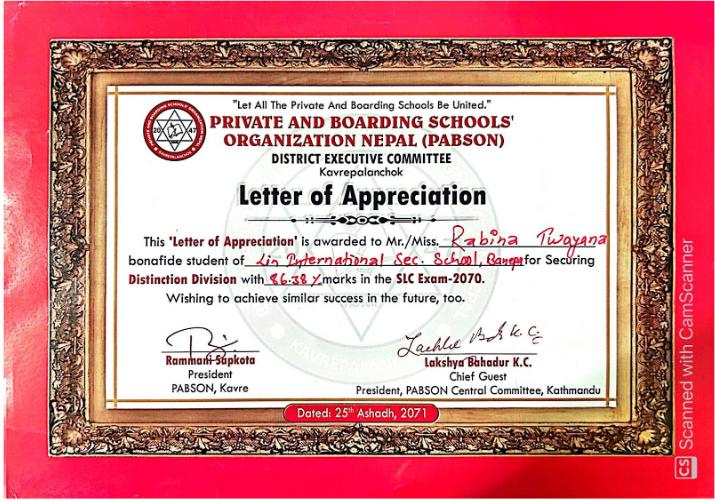 "Let All The Private And Boarding Schools Be United."
PRIVATE AND BOARDING SCHOOLS'
ORGANIZATION NEPAL (PABSON)
DISTRICT EXECUTIVE COMMITTEE
Kavrepalanchok
Letter of Appreciation
This 'Letter of Appreciation' is awarded to Mr./Miss. Rabina Twayana
bonafide student of Lin International Sec. School, Banepa for Securing
Distinction Division with 86.38% marks in the SLC Exam-2070.
Wishing to achieve similar success in the future, too.
Rammani Sapkota
President
PABSON, Kavre
Lakshya Bahadur K.C.
Chief Guest
President, PABSON Central Committee, Kathmandu
Dated: 25th Ashadh, 2071
20 47
CS Scanned with CamScanner